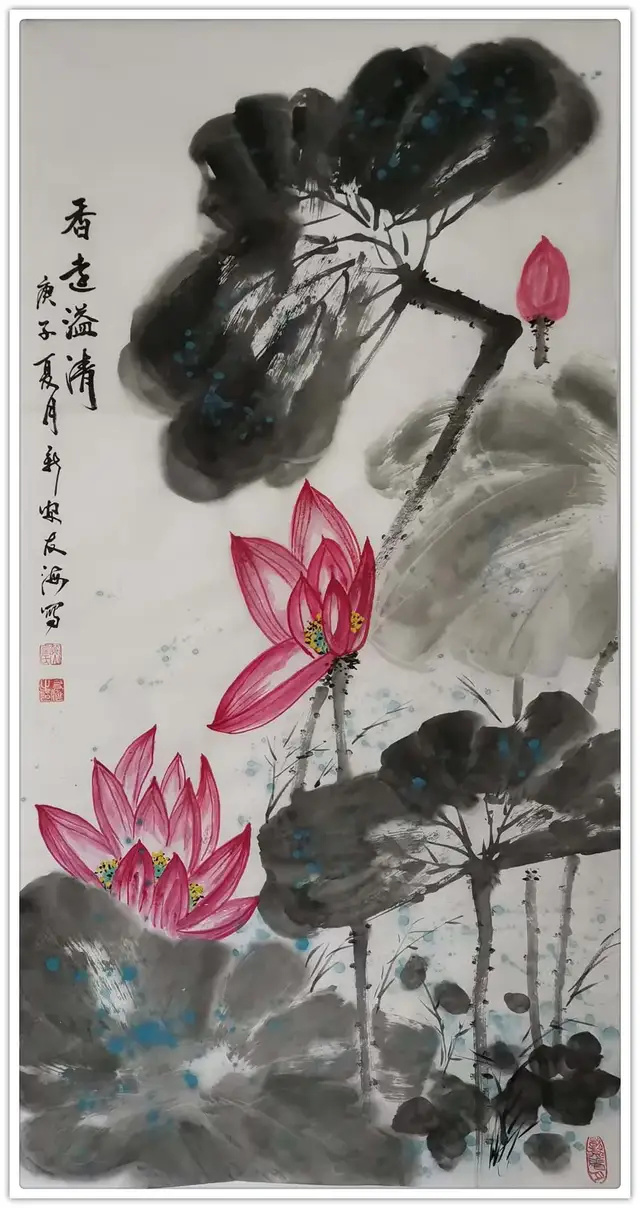 香远溢清
庚子夏月新友海写